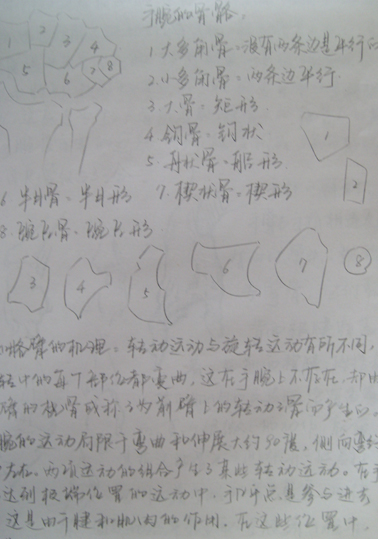 手腕的骨骼。
1 2 3 4
5 6 7 8
1 大多角骨。没有两条边是平行的
2. 小多角骨。两条边平行.
3. 大骨。矩形
4 钩骨。钩状
5. 舟状骨。船形.
6. 半月骨。半月形 7. 楔状骨。楔形
8. 豌豆骨。豌豆形.
1
2
3 4 5 6 7 8
臂的机理。转动运动与旋转运动有所不同,
转中的每个部位都弯曲,这在手腕上不存在,却由
臂的桡骨或称之为前臂上的转动之骨而产生的。
腕的运动局限于弯曲和伸展大约90度,侧向弯
左右。两项运动的组合产生了某些转动运动。在手
达到极端位置的运动中,手
这是由于腱和肌肉的作用。在这些位置中,